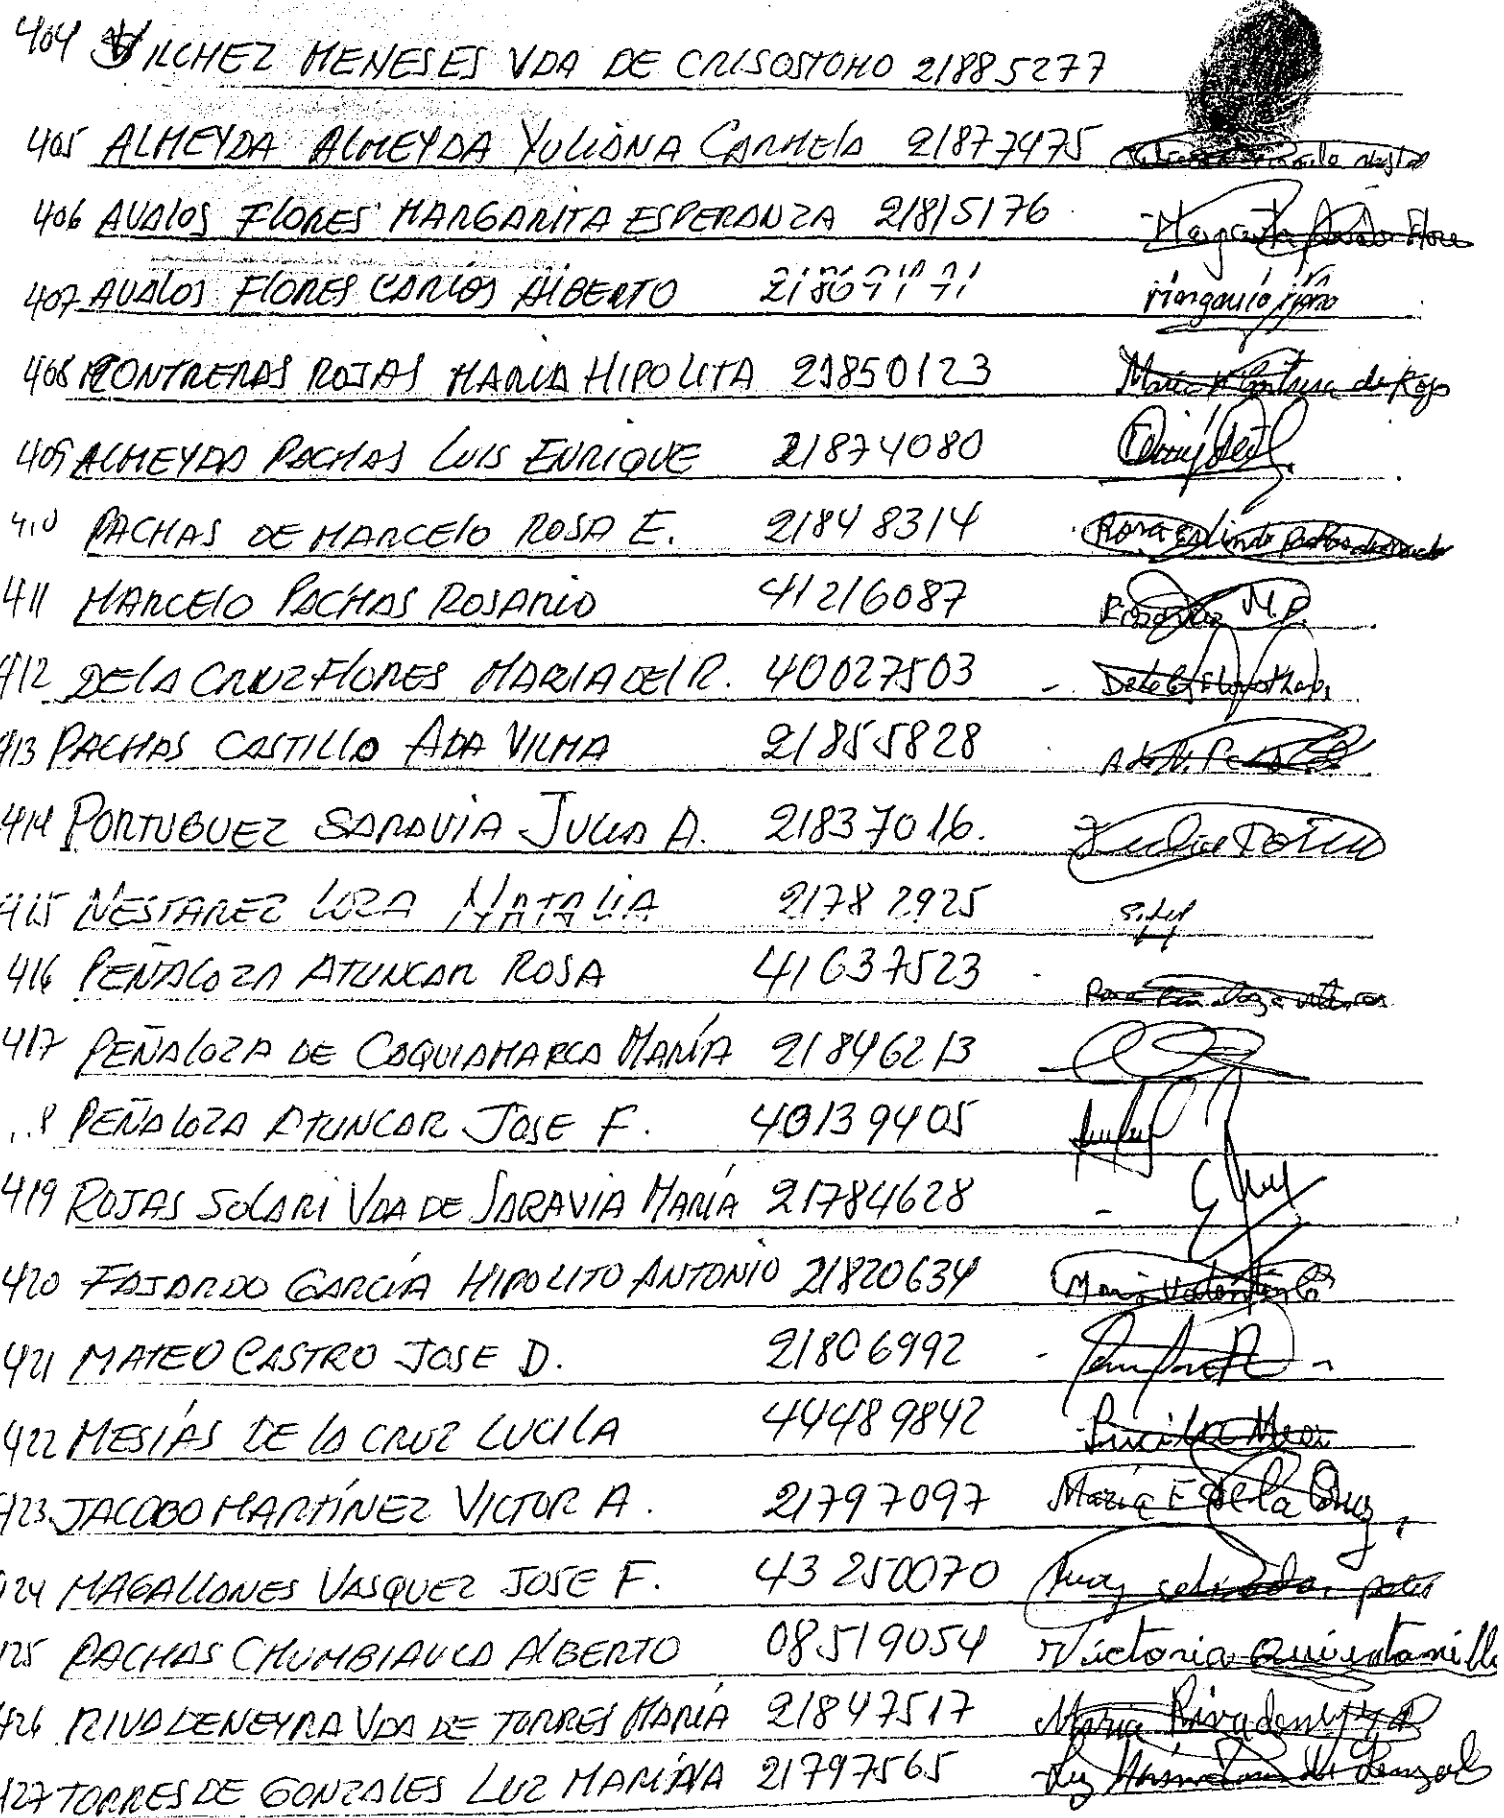 404 VILCHEZ MENESES VDA DE CRISOSTOMO 21885277
405 ALMEYDA ALMEYDA YULIANA CARMELA 21877475
406 AVALOS FLORES MARGARITA ESPERANZA 21815176 Margarita Avalos Flores
407 AVALOS FLORES CARLOS ALBERTO
408 CONTRERAS ROJAS MARIA HIPOLITA 21850123 Maria de Rojas
409 ALMEYDA PACHAS LUIS ENRIQUE 21874080
410 PACHAS DE MARCELO ROSA E. 21848314 Rosa
411 MARCELO PACHAS ROSARIO 41216087 M.P.
412 DE LA CRUZ FLORES MARIA DEL R. 40027503
413 PACHAS CASTILLO ADA VILMA 21855828
414 PORTUGUEZ SARAVIA JULIA A. 21837016.
415 NESTAREZ LOZA NATALIA 21782925
416 PEÑALOZA ATUNCAR ROSA 41637523
417 PEÑALOZA DE COQUIAMARCA MARÍA 21846213
8 PEÑALOZA ATUNCAR JOSE F. 40139405
419 ROJAS SOLARI VDA DE SARAVIA MARÍA 21784628
420 FAJARDO GARCÍA HIPOLITO ANTONIO 21820634
421 MATEO CASTRO JOSE D. 21806992
422 MESÍAS DE LA CRUZ LUCILA 44489842 Lucila
423 JACOBO MARTÍNEZ VICTOR A. 21797097 María E de la Cruz
424 MAGALLANES VASQUEZ JOSE F. 43250070
125 PACHAS CHUMBIAUCA ALBERTO 08519054 Victoria Quintanilla
426 RIVADENEYRA VDA DE TORRES MARÍA 21847517 Maria Rivadeneyra
427 TORRES DE GONZALES LUZ MARINA 21797565 Luz